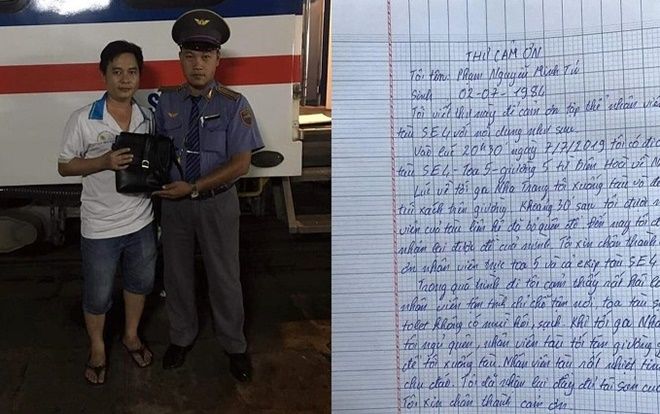 THƯ CẢM ƠN
Tôi tên: Phạm Nguyễn Minh Tú
Sinh 02-07-1984
Tôi viết thư này để cảm ơn tập thể nhân viên
tàu SE4 với nội dung như sau.
Vào lúc 20h30 ngày 7/7/2019 tôi có đi
tàu SE4 - Toa 5 - giường 5 từ Biên Hoà về N
Lúc về tới ga Nha Trang tôi xuống tàu và
túi xách trên giường. Khoảng 30 sau tôi được
viên của tàu liên hệ đã bỏ quên đồ. Đến nay tôi đ
nhận lại được đồ của mình. Tôi xin chân thành
ơn nhân viên trực toa 5 và cả ekip tàu SE4
Trong quá trình đi tôi cảm thấy rất hài l
nhân viên tận tình chỉ chỗ tận nơi, toa tàu s
tolet không có mùi hôi, sạch. Khi tới ga Nha
tôi ngủ quên, nhân viên tàu tới tận giường
để tôi xuống tàu. Nhân viên tàu rất nhiệt tìn
chu đáo. Tôi đã nhận lại đầy đủ tài sản củ
Tôi xin chân thành cảm ơn